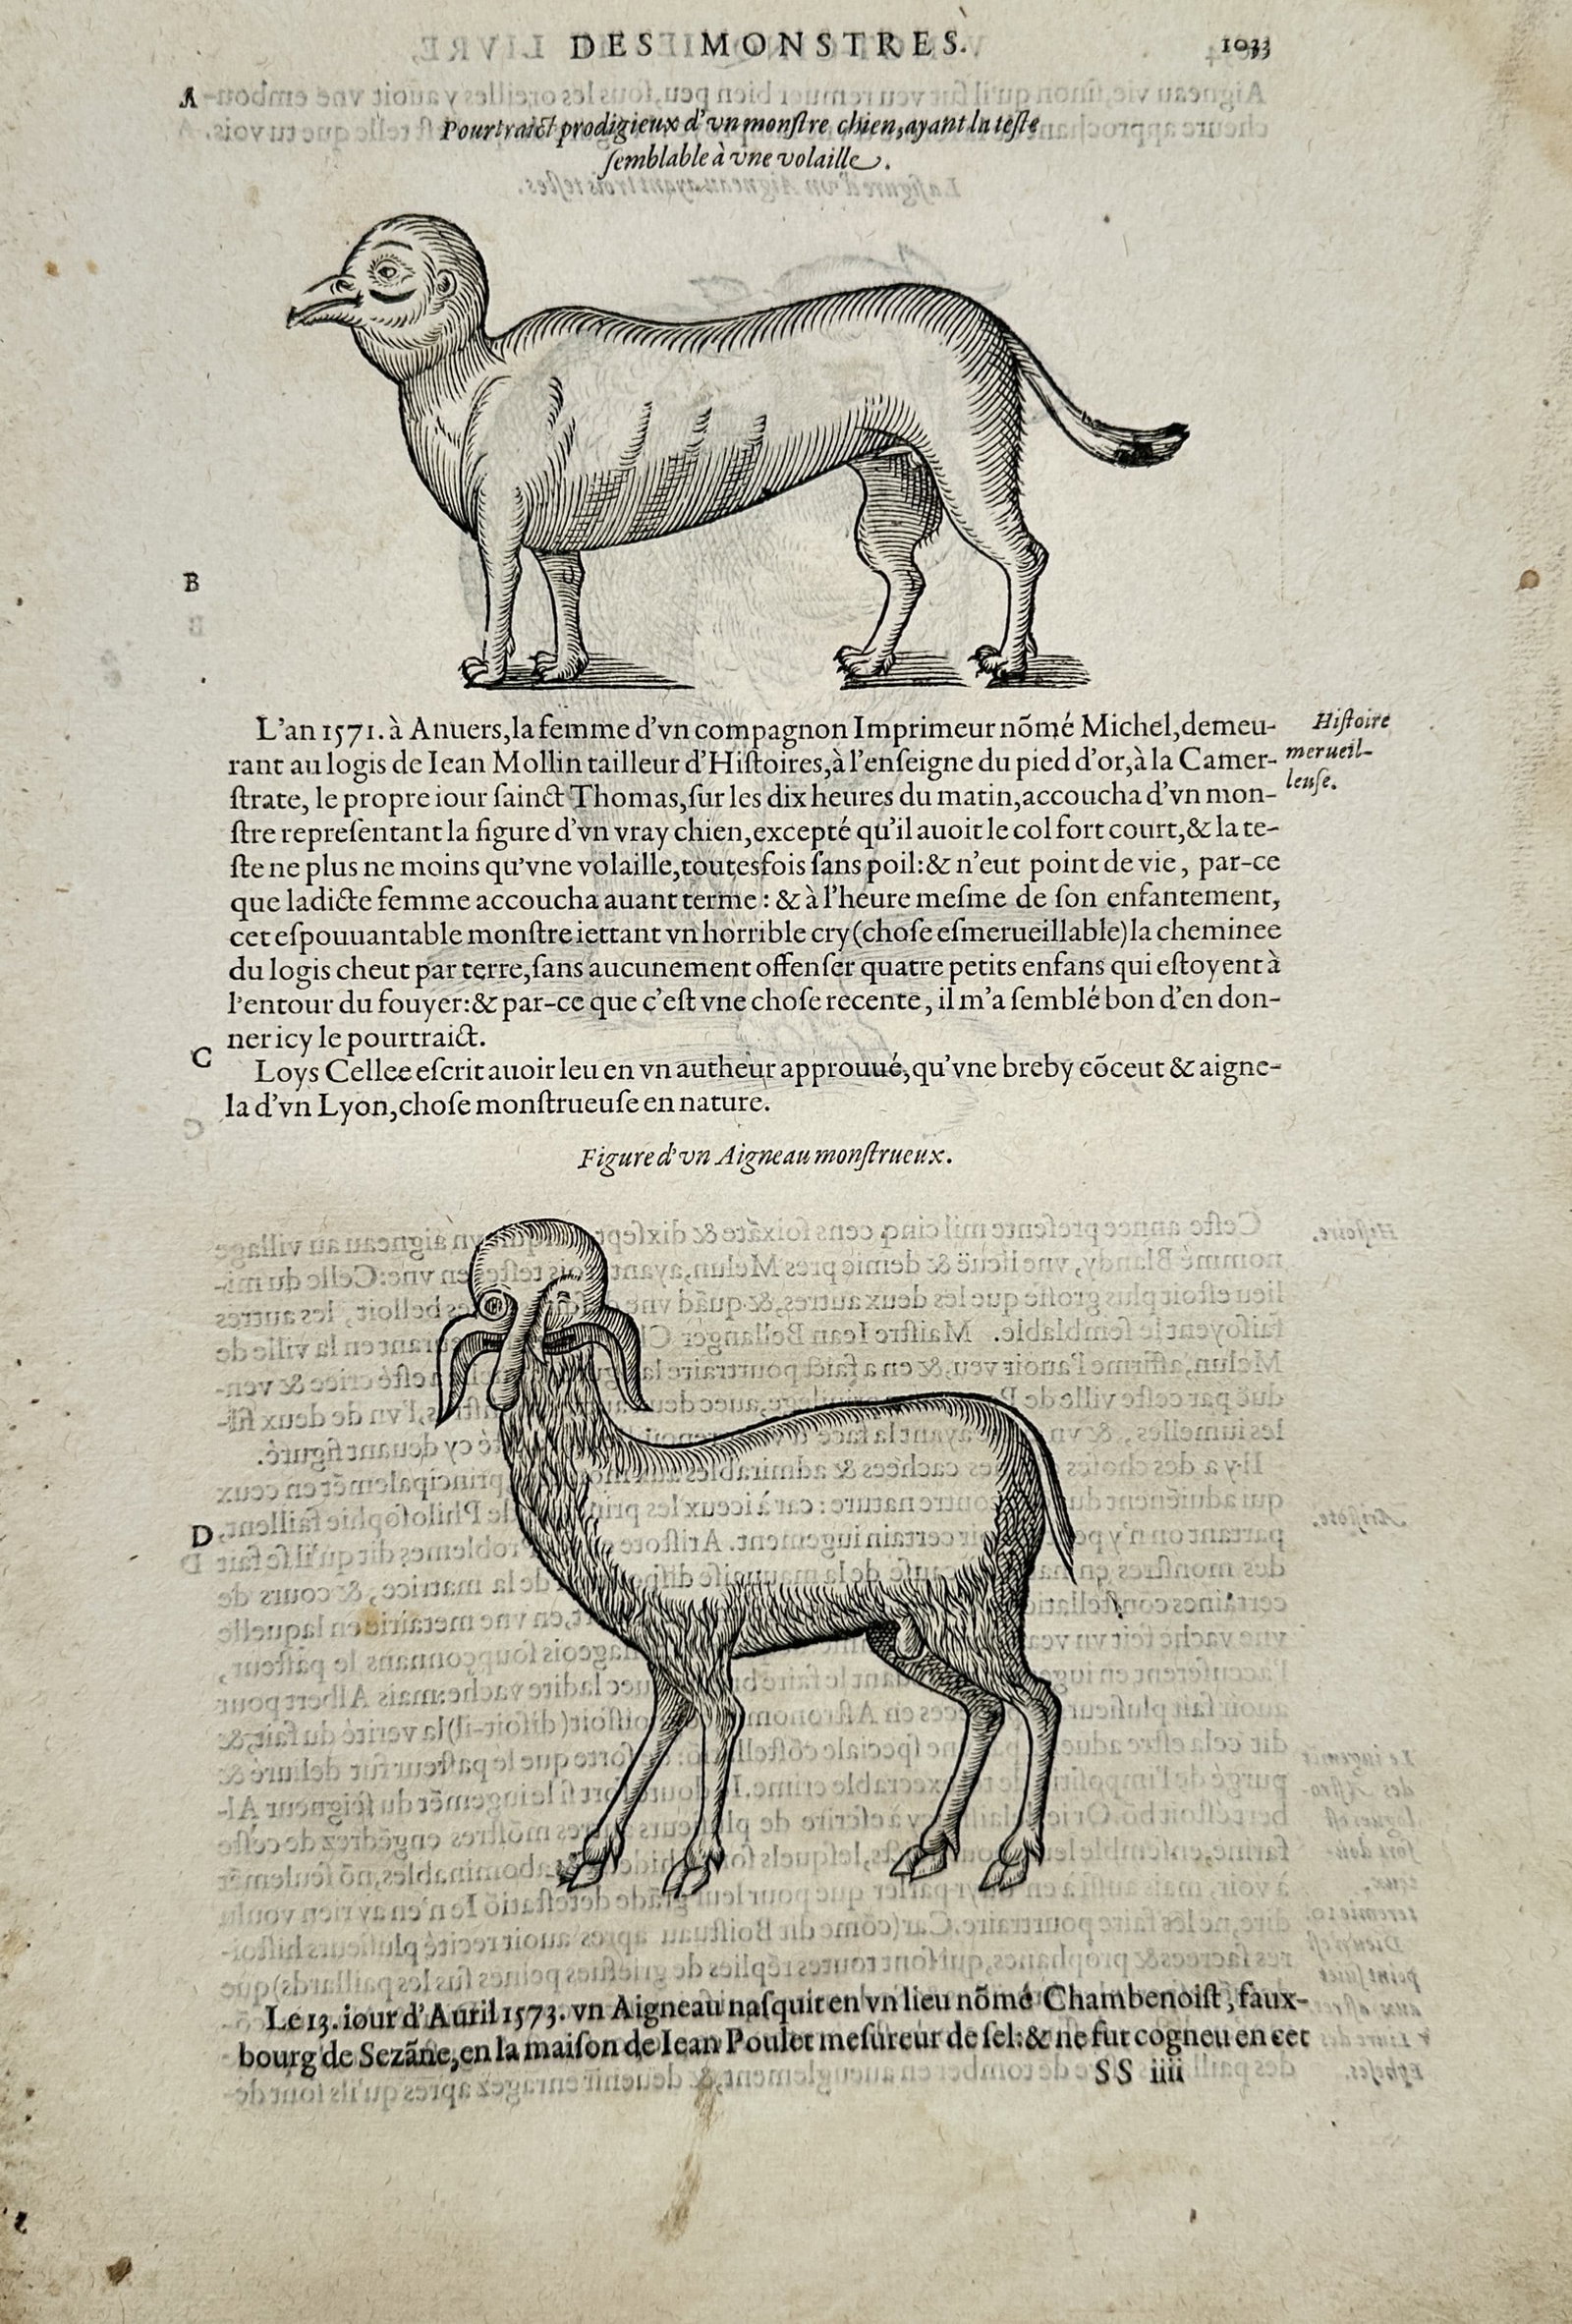 DES MONSTRES.
1033
A
Pourtraict prodigieux d'vn monſtre chien, ayant la teſte
ſemblable à vne volaille.
B
L'an 1571. à Anuers, la femme d'vn compagnon Imprimeur nõmé Michel, demeu-
rant au logis de Iean Mollin tailleur d'Hiſtoires, à l'enſeigne du pied d'or, à la Camer-
ſtrate, le propre iour ſainct Thomas, ſur les dix heures du matin, accoucha d'vn mon-
ſtre repreſentant la figure d'vn vray chien, excepté qu'il auoit le col fort court, & la te-
ſte ne plus ne moins qu'vne volaille, toutesfois ſans poil: & n'eut point de vie, par-ce
que ladicte femme accoucha auant terme: & à l'heure meſme de ſon enfantement,
cet eſpouuantable monſtre iettant vn horrible cry (choſe eſmerueillable) la cheminee
du logis cheut par terre, ſans aucunement offenſer quatre petits enfans qui eſtoyent à
l'entour du fouyer: & par-ce que c'eſt vne choſe recente, il m'a ſemblé bon d'en don-
ner icy le pourtraict.
Hiſtoire
merueil-
leuſe.
C
Loys Cellee eſcrit auoir leu en vn autheur approuué, qu'vne breby cõceut & aigne-
la d'vn Lyon, choſe monſtrueuſe en nature.
Figure d'vn Aigneau monſtrueux.
D
Le 13. iour d'Auril 1573. vn Aigneau naſquit en vn lieu nõmé Chambenoiſt, faux-
bourg de Sezãne, en la maiſon de Iean Poulet meſureur de ſel: & ne fut cogneu en cet
SS iiii